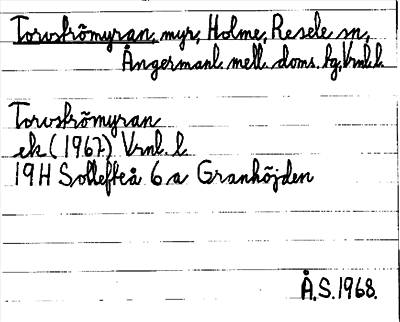 Torvströmyran, myr, Holme, Resele sn,
Ångermanl. mell. doms. hg, Vrnl. l.
Torvströmyran
ek (1967) Vrnl. l
19H Sollefteå 6 a Granhöjden
Å.S. 1968.